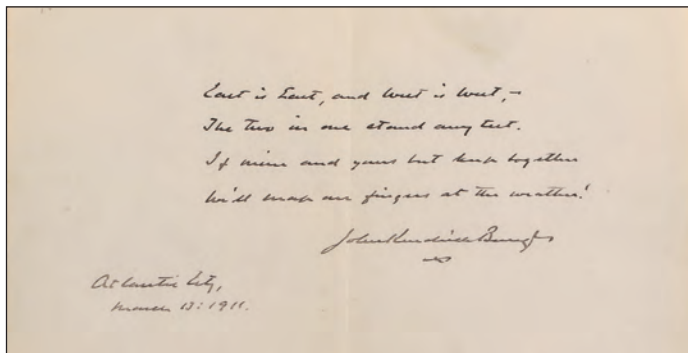 East is East, and West is West,—
The two in one stand any test.
If mine and yours but keep together
We'll snap our fingers at the weather!
John Kendrick Bangs
Atlantic City,
March 13: 1911.